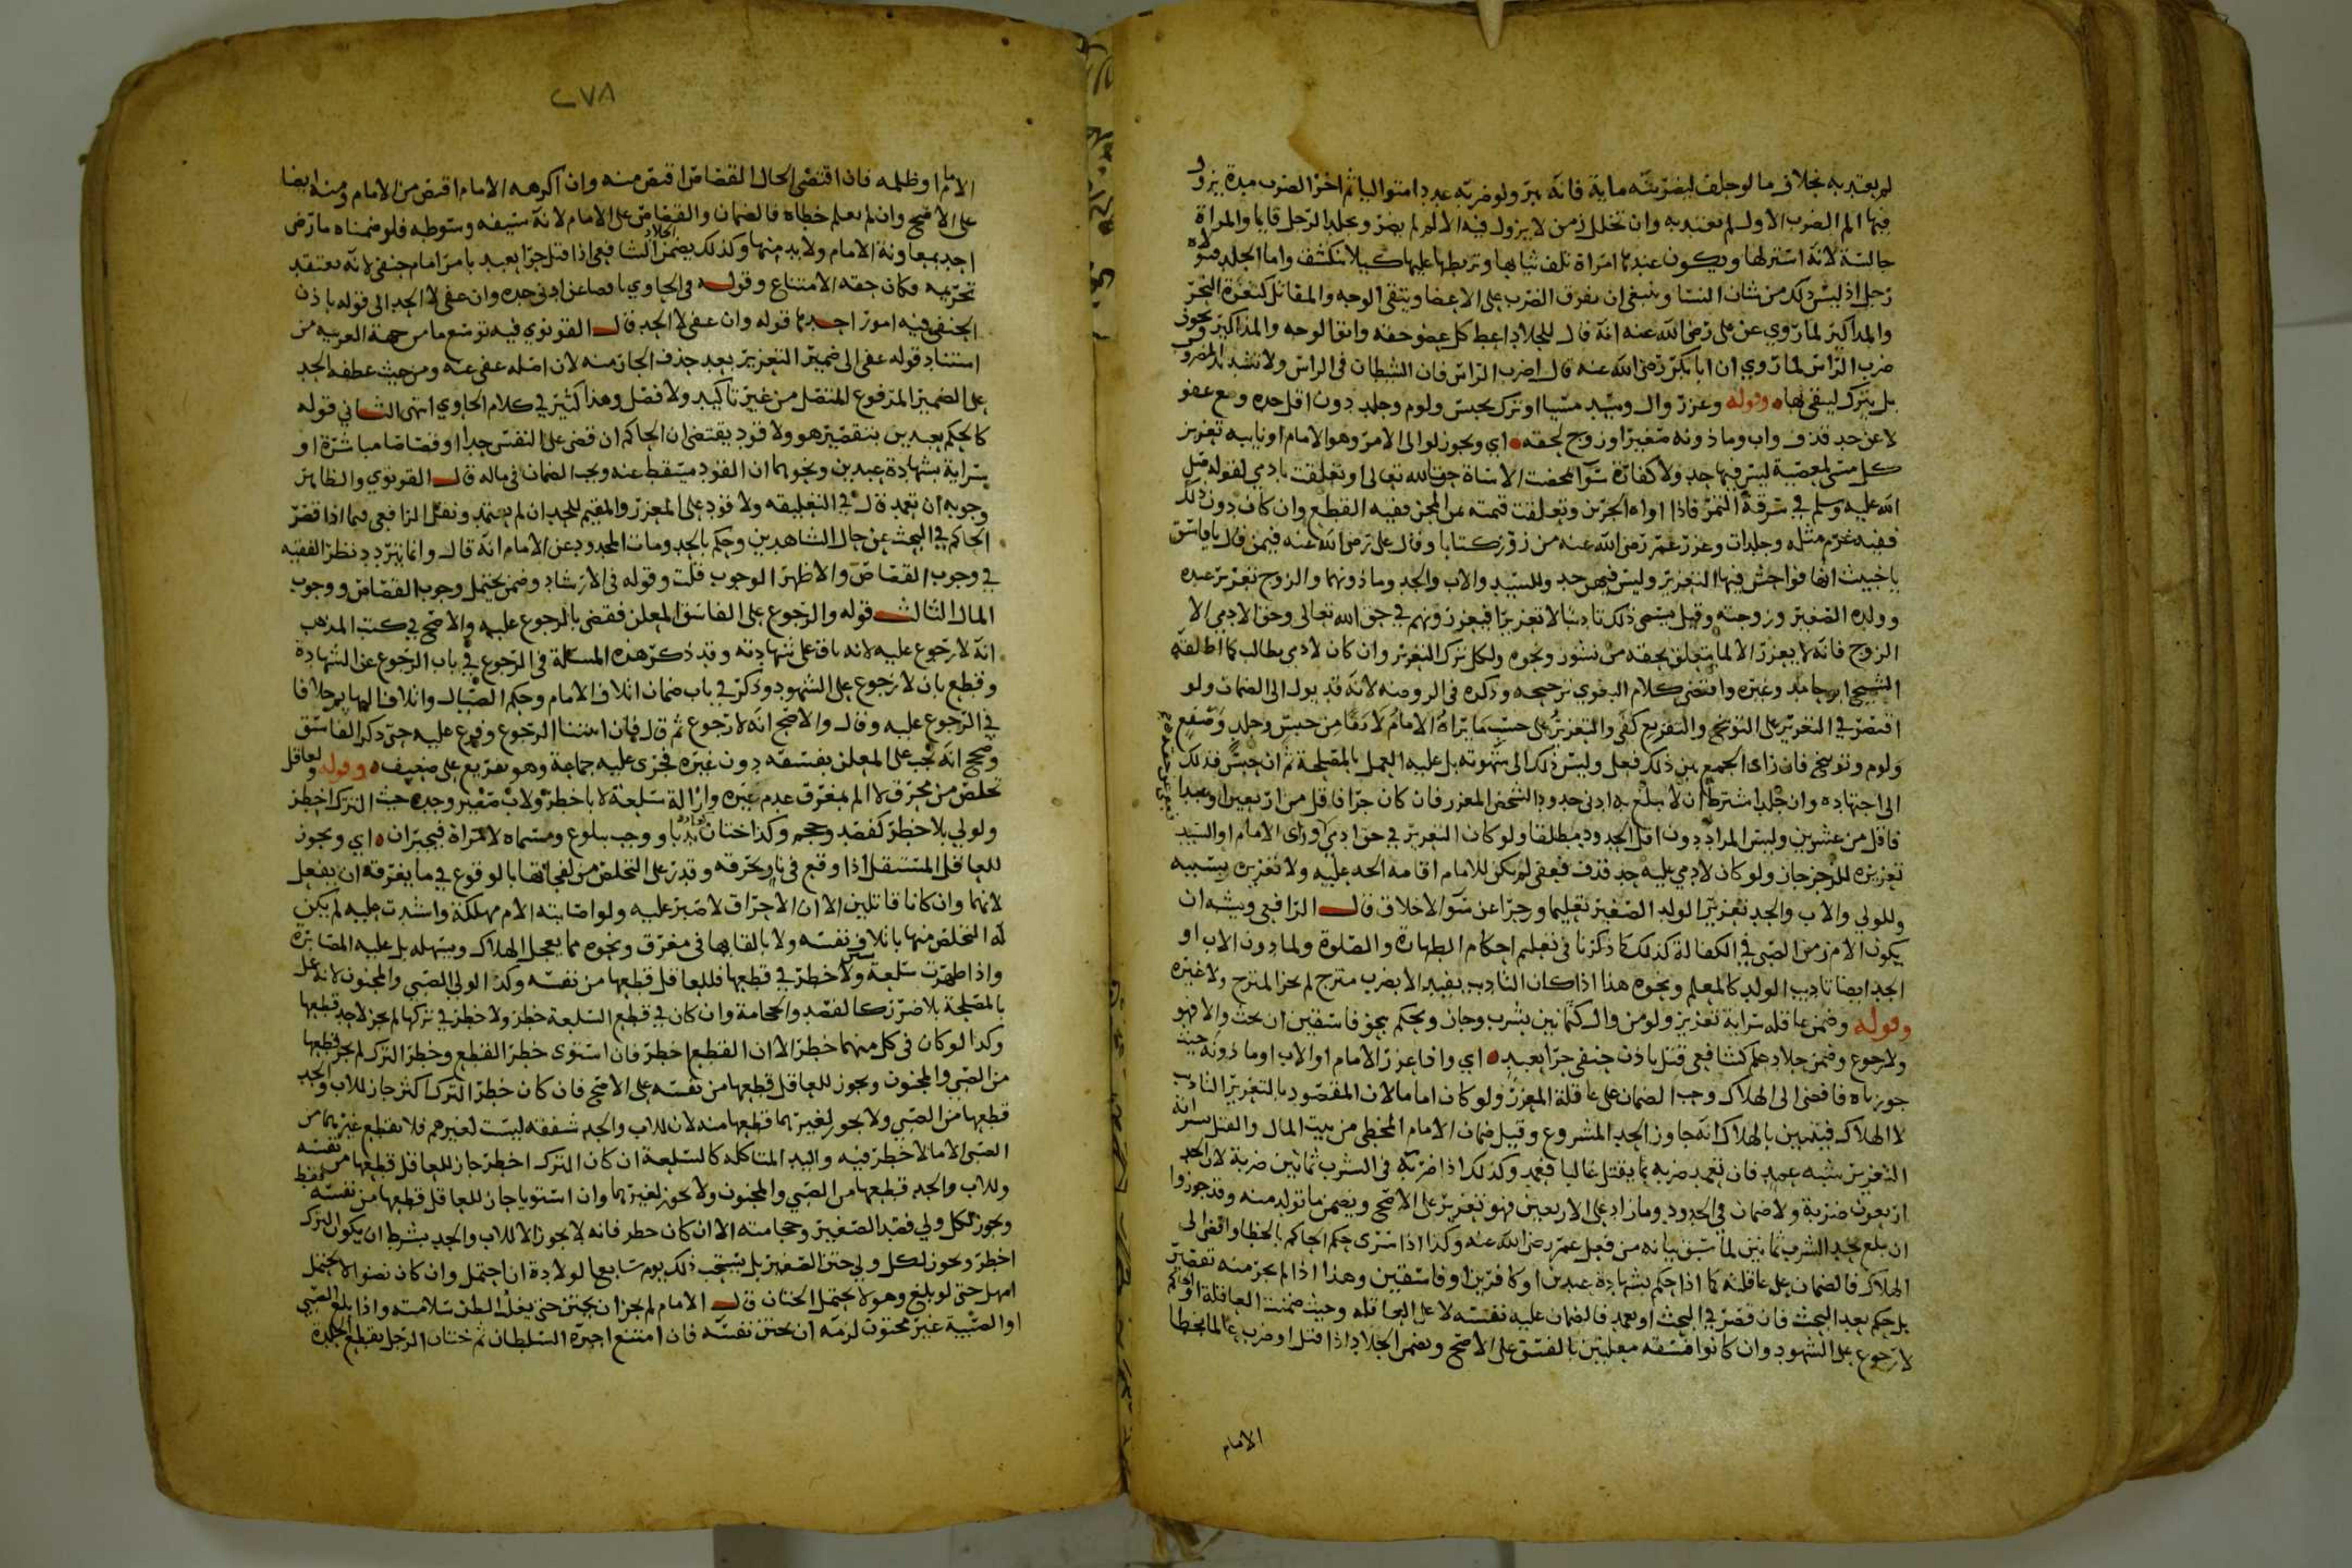 لم يعتد به بخلاف ما لو حلف ليضربنه ماية فانه يبر ولو ضربه عددا متواليا ثم اخر الضرب مدة يزول
فيها الم الضرب الاول لم يعتد به وان تخلل زمن لا يزول فيه الالم لم يضر ويجلد الرجل قايما والمراة
جالسة لانه استر لها ويكون عندها امراة تلف ثيابها وتربطها عليها كيلا تنكشف واما الجلد فتولاه
رجل اذ ليس ذلك من شان النسا وينبغي ان يفرق الضرب على الاعضا ويتقى الوجه والمقاتل كثغرة النحر
والمذاكير لما روي عن علي رضي الله عنه انه قال للجلاد اعط كل عضو حقه واتق الوجه والمذاكير ويجوز
ضرب الراس لما روي ان ابا بكر رضي الله عنه قال اضرب الراس فان الشيطان في الراس ولا تشد يد المضروب
بل يترك ليتقي بها وقوله وعزر وال وسيد مسيا او ترك بحبس ولوم وجلد دون اقل حده ومع عفو
لا عن حد قذف واب وماذونه صغيرا وزوج لحقه اي ويجوز لوالى الامر وهو الامام او نايبه تعزير
كل مسى لمعصية ليس فيها حد ولا كفارة سوا محضت الاساة حق الله تعالى او تعلقت بادمي لقوله صلى
الله عليه وسلم في سرقة التمر فاذا اواه الجرين وبلغت قيمته ثمن المجن ففيه القطع وان كان دون ذلك
ففيه غرم مثله وجلدات وعزر عمر رضي الله عنه من زور كتابا وقال علي رضي الله عنه فيمن قال يا فاسق
يا خبيث انها فواحش فيها التعزير وليس فيهن حد وللسيد والاب والجد وماذونهما والزوج تعزير عبده
وولده الصغير وزوجته وقيل يسمى ذلك تاديبا لا تعزيرا فيعزرونهم في حق الله تعالى وحق الادمي الا
الزوج فانه لا يعزر الا لما يتعلق بحقه من نشوز ونحوه ولكل ترك التعزير وان كان لادمي يطالب كما اطلقه
الشيخ ابو حامد وغيره واقتضى كلام البغوي ترجيحه وذكره في الروضة لانه قد يول الى الضمان ولو
اقتصر في التعزير على التوبيخ والتقريع كفى والتعزير على حسب ما يراه الامام لادقا من حبس وجلد وصفع
ولوم وتوبيخ فان راى الجمع بين ذلك فعل وليس ذلك الى شهوته بل عليه العمل بالمصلحة ثم ان حبس فذلك
الى اجتهاده وان جلد اشترط ان لا يبلغ به ادنى حدود الشخص المعزر فان كان حرا فاقل من اربعين او عبدا
فاقل من عشرين وليس المراد دون اقل الحدود مطلقا ولو كان التعزير في حق ادمي وراى الامام او السيد
تعزيره للزجر جاز ولو كان لادمي عليه حد قذف فعفى لم يكن للامام اقامة الحد عليه ولا تعزيره بسببه
وللولي والاب والجد تعزير الولد الصغير تعليما وزجرا عن سو الاخلاق قال الرافعي ويشبه ان
يكون الام زمن الصبي في الكفالة كذلك كما ذكرنا في تعليم احكام الطهارة والصلوة ولماذون الاب او
الجد ايضا تاديب الولد كالمعلم ونحوه هذا اذا كان التاديب يفيد الا بضرب مبرح لم يجز المبرح ولا غيره
وقوله وضمن عاقله سراية تعزير ولو من وال كثمانين بشرب وجان وبحكم بنحو فاسقين ان بحث والا فهو
ولا رجوع وضمن جلاد علم كشافعي قتل باذن حنفي حرا بعبد اي واذا عزر الامام او الاب او ماذونه حيث
جوزناه فافضى الى الهلاك وجب الضمان على عاقلة المعزر ولو كان اماما لان المقصود بالتعزير التاديب
لا الهلاك فيتبين بالهلاك انه جاوز الحد المشروع وقيل ضمان الامام المخطى من بيت المال والقتل بسراية
التعزير شبه عمد فان تعمد ضربه بما يقتل غالبا فعمد وكذلك اذا ضربه في الشرب ثمانين ضربة لان الحد
اربعون ضربة ولا ضمان في الحدود وما زاد على الاربعين فهو تعزير على الاصح ويضمن ما تولد منه وقد جوزوا
ان يبلغ بحد الشرب ثمانين لما سبق بيانه من فعل عمر رضي الله عنه وكذا اذا سرى حكم الحاكم بالخطا وافضى الى
الهلاك فالضمان على عاقلته كما اذا حكم بشهادة عبدين او كافرين او فاسقين وهذا اذا لم يجر منه تقصير
بل حكم بعد البحث فان قصر في البحث او تعمد فالضمان عليه نفسه لا على العاقله وحيث ضمنت العاقلة او الحاكم
لا رجوع على الشهود وان كانوا فسقه معلنين بالفسق على الاصح ويضمن الجلاد اذا قتل او ضرب عالما بخطا
الامام
٢٧٨
الامام او ظلمه فان اقتضى الحال القصاص اقتص منه وان اكرهه الامام اقتص من الامام ومنه ايضا
على الاصح وان لم يعلم خطاه فالضمان والقصاص على الامام لانه سيفه وسوطه فلو ضمناه ما رضي
احد بمعاونة الامام ولا بد منها وكذلك يضمن الجلاد الشافعي اذا قتل حرا بعبد بامر امام حنفي لانه يعتقد
تحريمه فكان حقه الامتناع وقوله في الحاوي ناقصا عن ادنى حده وان عفى لا الحد الى قوله باذن
الحنفي فيه امور احدها قوله وان عفى لا الحد قال القونوي فيه توسع ما من جهة العربيه من
استناد قوله عفى الى ضمير التعزير بعد حذف الجار منه لان اصله عفى عنه ومن حيث عطفه الحد
على الضمير المرفوع المتصل من غير تاكيد ولا فصل وهذا كثير في كلام الحاوي انتهى الثاني قوله
كالحكم بعبدين بتقصير هو ولا قود يقتضى ان الحاكم ان قضى على النفس حدا او قصاصا مباشرة او
سراية بشهادة عبدين ونحوهما ان القود يسقط عنه ويجب الضمان في ماله قال القونوي والظاهر
وجوبه ان تعمد قال في التعليقه ولا قود على المعزر والمقيم للحد ان لم يتعمد ونقل الرافعي فيما اذا قصر
الحاكم في البحث عن حال الشاهدين وحكم بالحد ومات المحدود عن الامام انه قال وانما يتردد نظر الفقيه
في وجوب القصاص والاظهر الوجوب قلت وقوله في الارشاد وضمن يحتمل وجوب القصاص ووجوب
المال الثالث قوله والرجوع على الفاسق المعلن فقضى بالرجوع عليه والاصح في كتب المذهب
انه لا رجوع عليه لانه باق على شهادته وقد ذكر هذه المسئلة في الرجوع في باب الرجوع عن الشهادة
وقطع بان لا رجوع على الشهود وذكر في باب ضمان اتلاف الامام وحكم الصيال واتلاف البهايم خلافا
في الرجوع عليه وقال والاصح انه لا رجوع ثم قال فان اثبتنا الرجوع وفرع عليه حتى ذكر الفاسق
وصحح انه يجب على المعلن بفسقه دون غيره فجرى عليه جماعة وهو تفريع على ضعيف وقوله ولعاقل
تخلص من محرق لا الم بمغرق عدم غيره وازالة سلعة لا باخطر ولاب صغير وجده حيث الترك اخطر
ولولي بلا خطر كفصد وحجم وكذا ختان ندبا ووجب ببلوغ ومسماه لامراة فيجبران اي ويجوز
للعاقل المستقل اذا وقع في نار يحرقه وقدر على التخلص من لفحاتها بالوقوع في ما يغرقه ان يفعل
لانهما وان كانا قاتلين الا ان الاحراق لا صبر عليه ولو اصابته الام مهلكة واشتدت عليه لم يكن
له التخلص منها باتلاف نفسه ولا بالقايها في مغرق ونحوه مما يعجل الهلاك ويسهله بل عليه المصابرة
واذا ظهرت سلعة ولا خطر في قطعها فللعاقل قطعها من نفسه وكذا لولي الصبي والمجنون لانه عمل
بالمصلحة بلا ضرر كالفصد والحجامة وان كان في قطع السلعة خطر ولا خطر في تركها لم يجز لاحد قطعها
وكذا لو كان في كل منهما خطر الا ان القطع اخطر فان استوى خطر القطع وخطر الترك لم يجز قطعها
من الصبي والمجنون ويجوز للعاقل قطعها من نفسه على الاصح فان كان خطر الترك اكثر جاز للاب والجد
قطعها من الصبي ولا يجوز لغيرهما قطعها منه لان للاب والجد شفقه ليست لغيرهم فلا يقطع غيرهما من
الصبي الا ما لا خطر فيه واليد المتاكله كالسلعة ان كان الترك اخطر جاز للعاقل قطعها من نفسه
وللاب والجد قطعها من الصبي والمجنون ولا يجوز لغيرهما وان استويا جاز للعاقل قطعها من نفسه فقط
ويجوز لكل ولي فصد الصغير وحجامته الا ان كان خطر فانه لا يجوز الا للاب والجد بشرط ان يكون الترك
اخطر ويجوز لكل ولي ختن الصغير بل يستحب ذلك يوم سابع الولادة ان احتمل وان كان نضوا لا يحتمل
امهل حتى لو بلغ وهو لا يحتمل الختان قال الامام لم يجز ان يختن حتى يغلب الظن سلامته واذا بلغ الصبي
او الصبية غير مختون لزمه ان يختن نفسه فان امتنع اجبره السلطان ثم ختان الرجل بقطع الجلدة